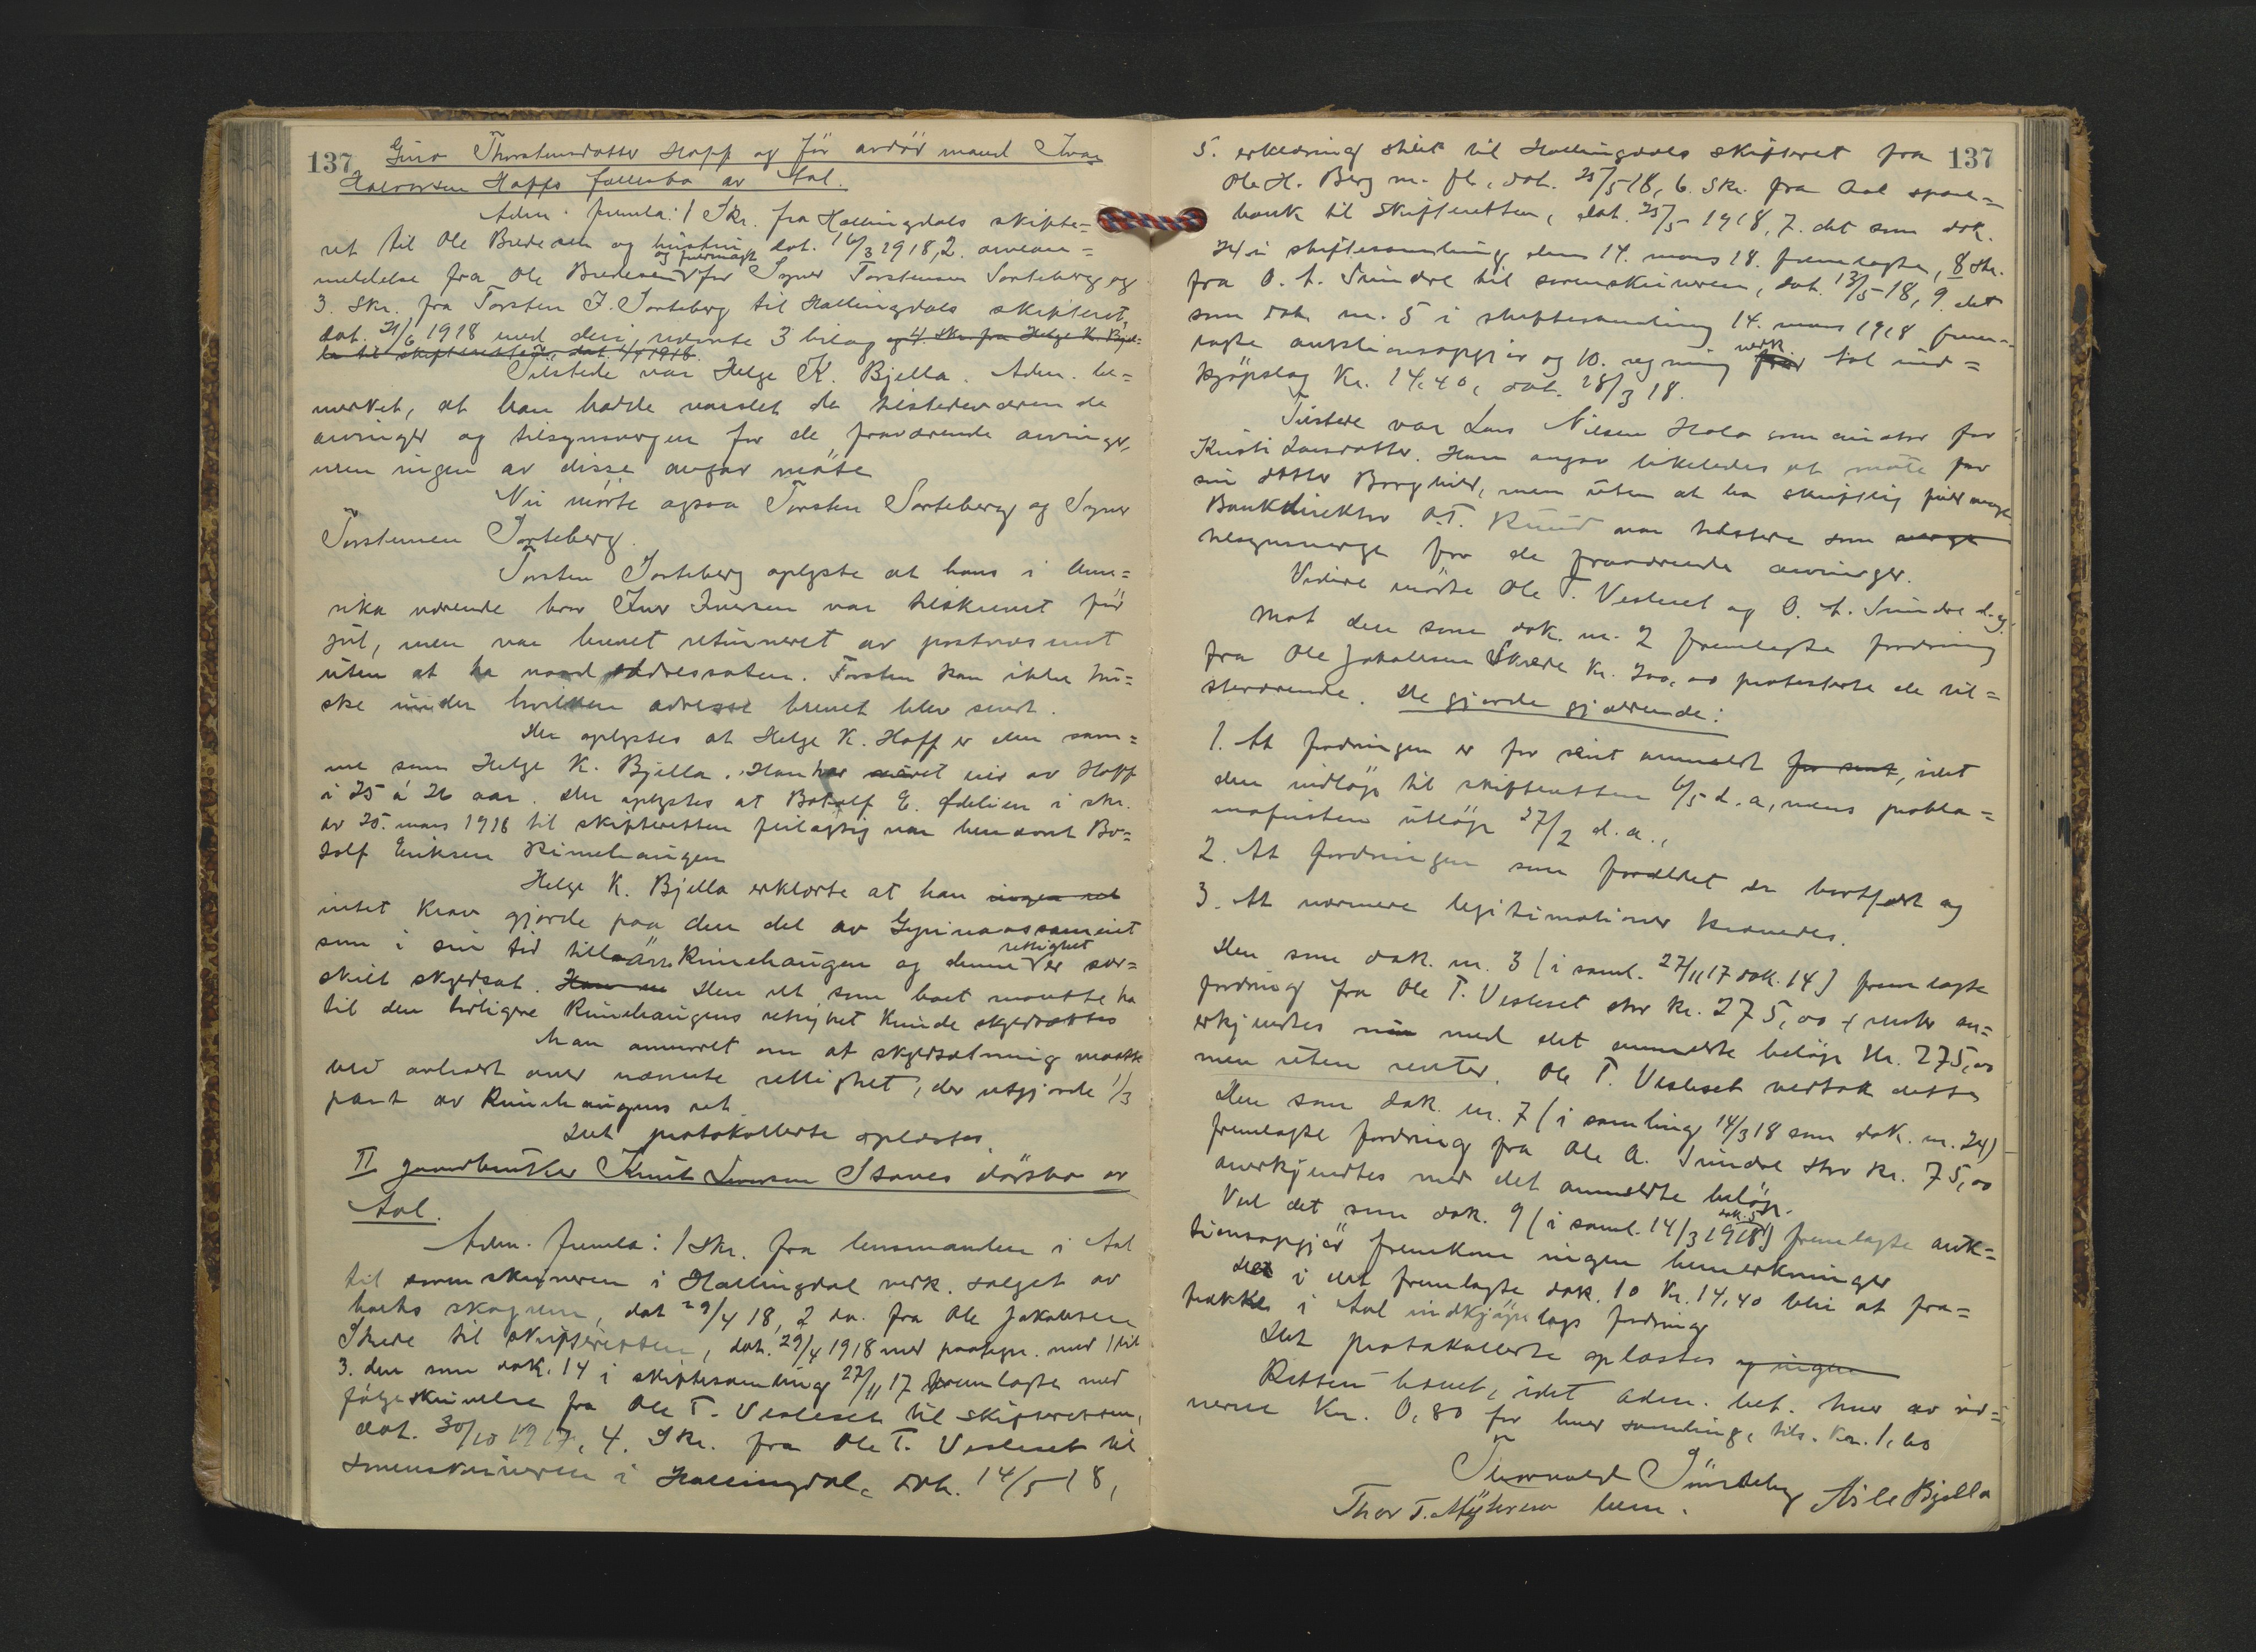 137
Guro Thorstensdatter Hoff og før avdøde mand Ivar
Halvorsen Hoffs fællesbo av Aal.
Adm. fremla: 1 Skr. fra Hallingdals skifte=
ret til Ole Bredesen og hustru, dat. 16/3 1918, 2.
meddelelse fra Ole Bredesen og fuldmagt for Syver Torstensen Sorteberg og
3. Skr. fra Torsten I. Sorteberg til Hallingdals skifteret,
dat. 21/6 1918 med deri nævnte 3 bilag og 4 Skr. fra Helge K. Bjel=
la til skifteretten, dat. 4/7 1918.
Tilstede var Helge K. Bjella. Adm. be=
merket, at han hadde varslet de tilstedeværende
arvinger og tilsynsvergen for de fraværende arvinger,
men ingen av disse avgav møte
Nu møtte ogsaa Torsten Sorteberg og Syver
Torstensen Sorteberg.
Torsten Sorteberg oplyste at hans i Ame=
rika værende bror Iver Iversen var tilskrevet før
jul, men var brevet returneret av postvæsenet
uten at ha naad addressaten. Torsten kan ikke hu=
ske under hvilken adresse brevet blev sendt.
Der oplystes at Helge K. Hoff er den sam=
me som Helge K. Bjella. Han har været eier av Hoff
i 25 á 26 aar. Der oplystes at Botolf E. Ødelien i skr.
av 25. mars 1918 til skifteretten feilagtig var benævnt Bo=
tolf Eriksen Rimehaugen
Helge K. Bjella erklærte at han ingen ret
intet krav gjorde paa den del av Gyrinaassameiet
som i sin tid tillaa Rimehaugen og denne rettighet er sær=
skilt skyldsat. Den ret, som boet maatte ha
til den tidligere Rimehaugens rettighet kunde skyldsættes
Man anmodet om at skyldsætning maatte
bli avholdt over nævnte rettighet, der utgjorde 1/3
part av Rimehaugens ret.
Det protokollerte oplæstes.
II gaardbruker Knut Iversen Staves dødsbo av
Aal.
Adm. fremla: 1 Skr. fra lensmanden i Aal
til sorenskriveren i Hallingdal vedk. salget av
boets skogrum, dat 29/4 18, 2 do. fra Ole Jakobsen
Skrede til skifteretten, dat. 29/4 1918 med paategn. med 1 bil
3. den som dok. 14 i skiftesamling 27/11 17 fremlagte med
følgeskrivelse fra Ole T. Vesleset til skifteretten,
dat. 30/10 1917, 4. Skr. fra Ole T. Vesleset til
sorenskriveren i Hallingdal, dat. 14/5 18,
137
5. erklæring stilet til Hallingdals skifteret fra
Ole H. Berg m. fl., dat. 25/5 18, 6. Skr. fra Aal spare=
bank til skifteretten, dat. 25/5 1918, 7. det som dok.
24 i skiftesamling den 14. mars 18. fremlagte, 8 skr.
fra O. A. Sundre til sorenskriveren, dat. 13/5 18, 9. det
som dok. nr. 5 i skiftesamling 14. mars 1918 frem=
lagte auktionsopgjør og 10. regning vedk. fra Aal ind=
kjøpslag kr. 14,40, dat. 28/3 18.
Tilstede var Lars Nilsen Hole som curator for
Kristi Larsdatter. Han angav likeledes at møte for
sin datter Borghild, men uten at ha skriftlig fuldmagt
Bankdirektør O.T. Ruud var tilstede som verge
tilsynsverge for de fraværende arvinger.
Videre møtte Ole T. Vesleset og O. A. Sundre d.y.
Mot den som dok. nr. 2 fremlagte fordring
fra Ole Jakobsen Skrede kr. 200,00 protesterte de til=
stedværende. De gjorde gjældende:
1. At fordringen er for sent anmeldt for sent, idet
den indløp til skifteretten 6/5 d.a., mens prokla=
mafristen utløp 27/2 d.a.,
2. At fordringen som foreldet er bortfaldt og
3. At nærmere legitimationer krævedes.
Den som dok. nr. 3 (i saml. 27/11 17 dok. 14) fremlagte
fordring fra Ole T. Vesleset stor kr. 275,00 + renter an=
erkjendtes nu med det anmeldte beløp kr. 275,00
men uten renter. Ole T. Vesleset vedtok dette
Den som dok. nr. 7 (i samling 14/3 18 som dok. nr. 24)
fremlagte fordring fra Ole A. Sundre stor kr. 75,00
anerkjendtes med det anmeldte beløp.
Ved det som dok. 9 (i saml. 14/3 1918 dok. 5) fremlagte auk=
tionsopgjør fremkom ingen bemerkninger
Det i det fremlagte dok. 10 kr. 14,40 blir at fra=
trække i Aal indkjøpslags fordring
Det protokollerte oplæstes og ingen
Retten hævet, idet adm. bet. hver av vid=
nerne kr. 0,80 for hver samling, tils. kr. 1,60
Thorvald Sundeby Asle Bjella
Thor T. Myhren